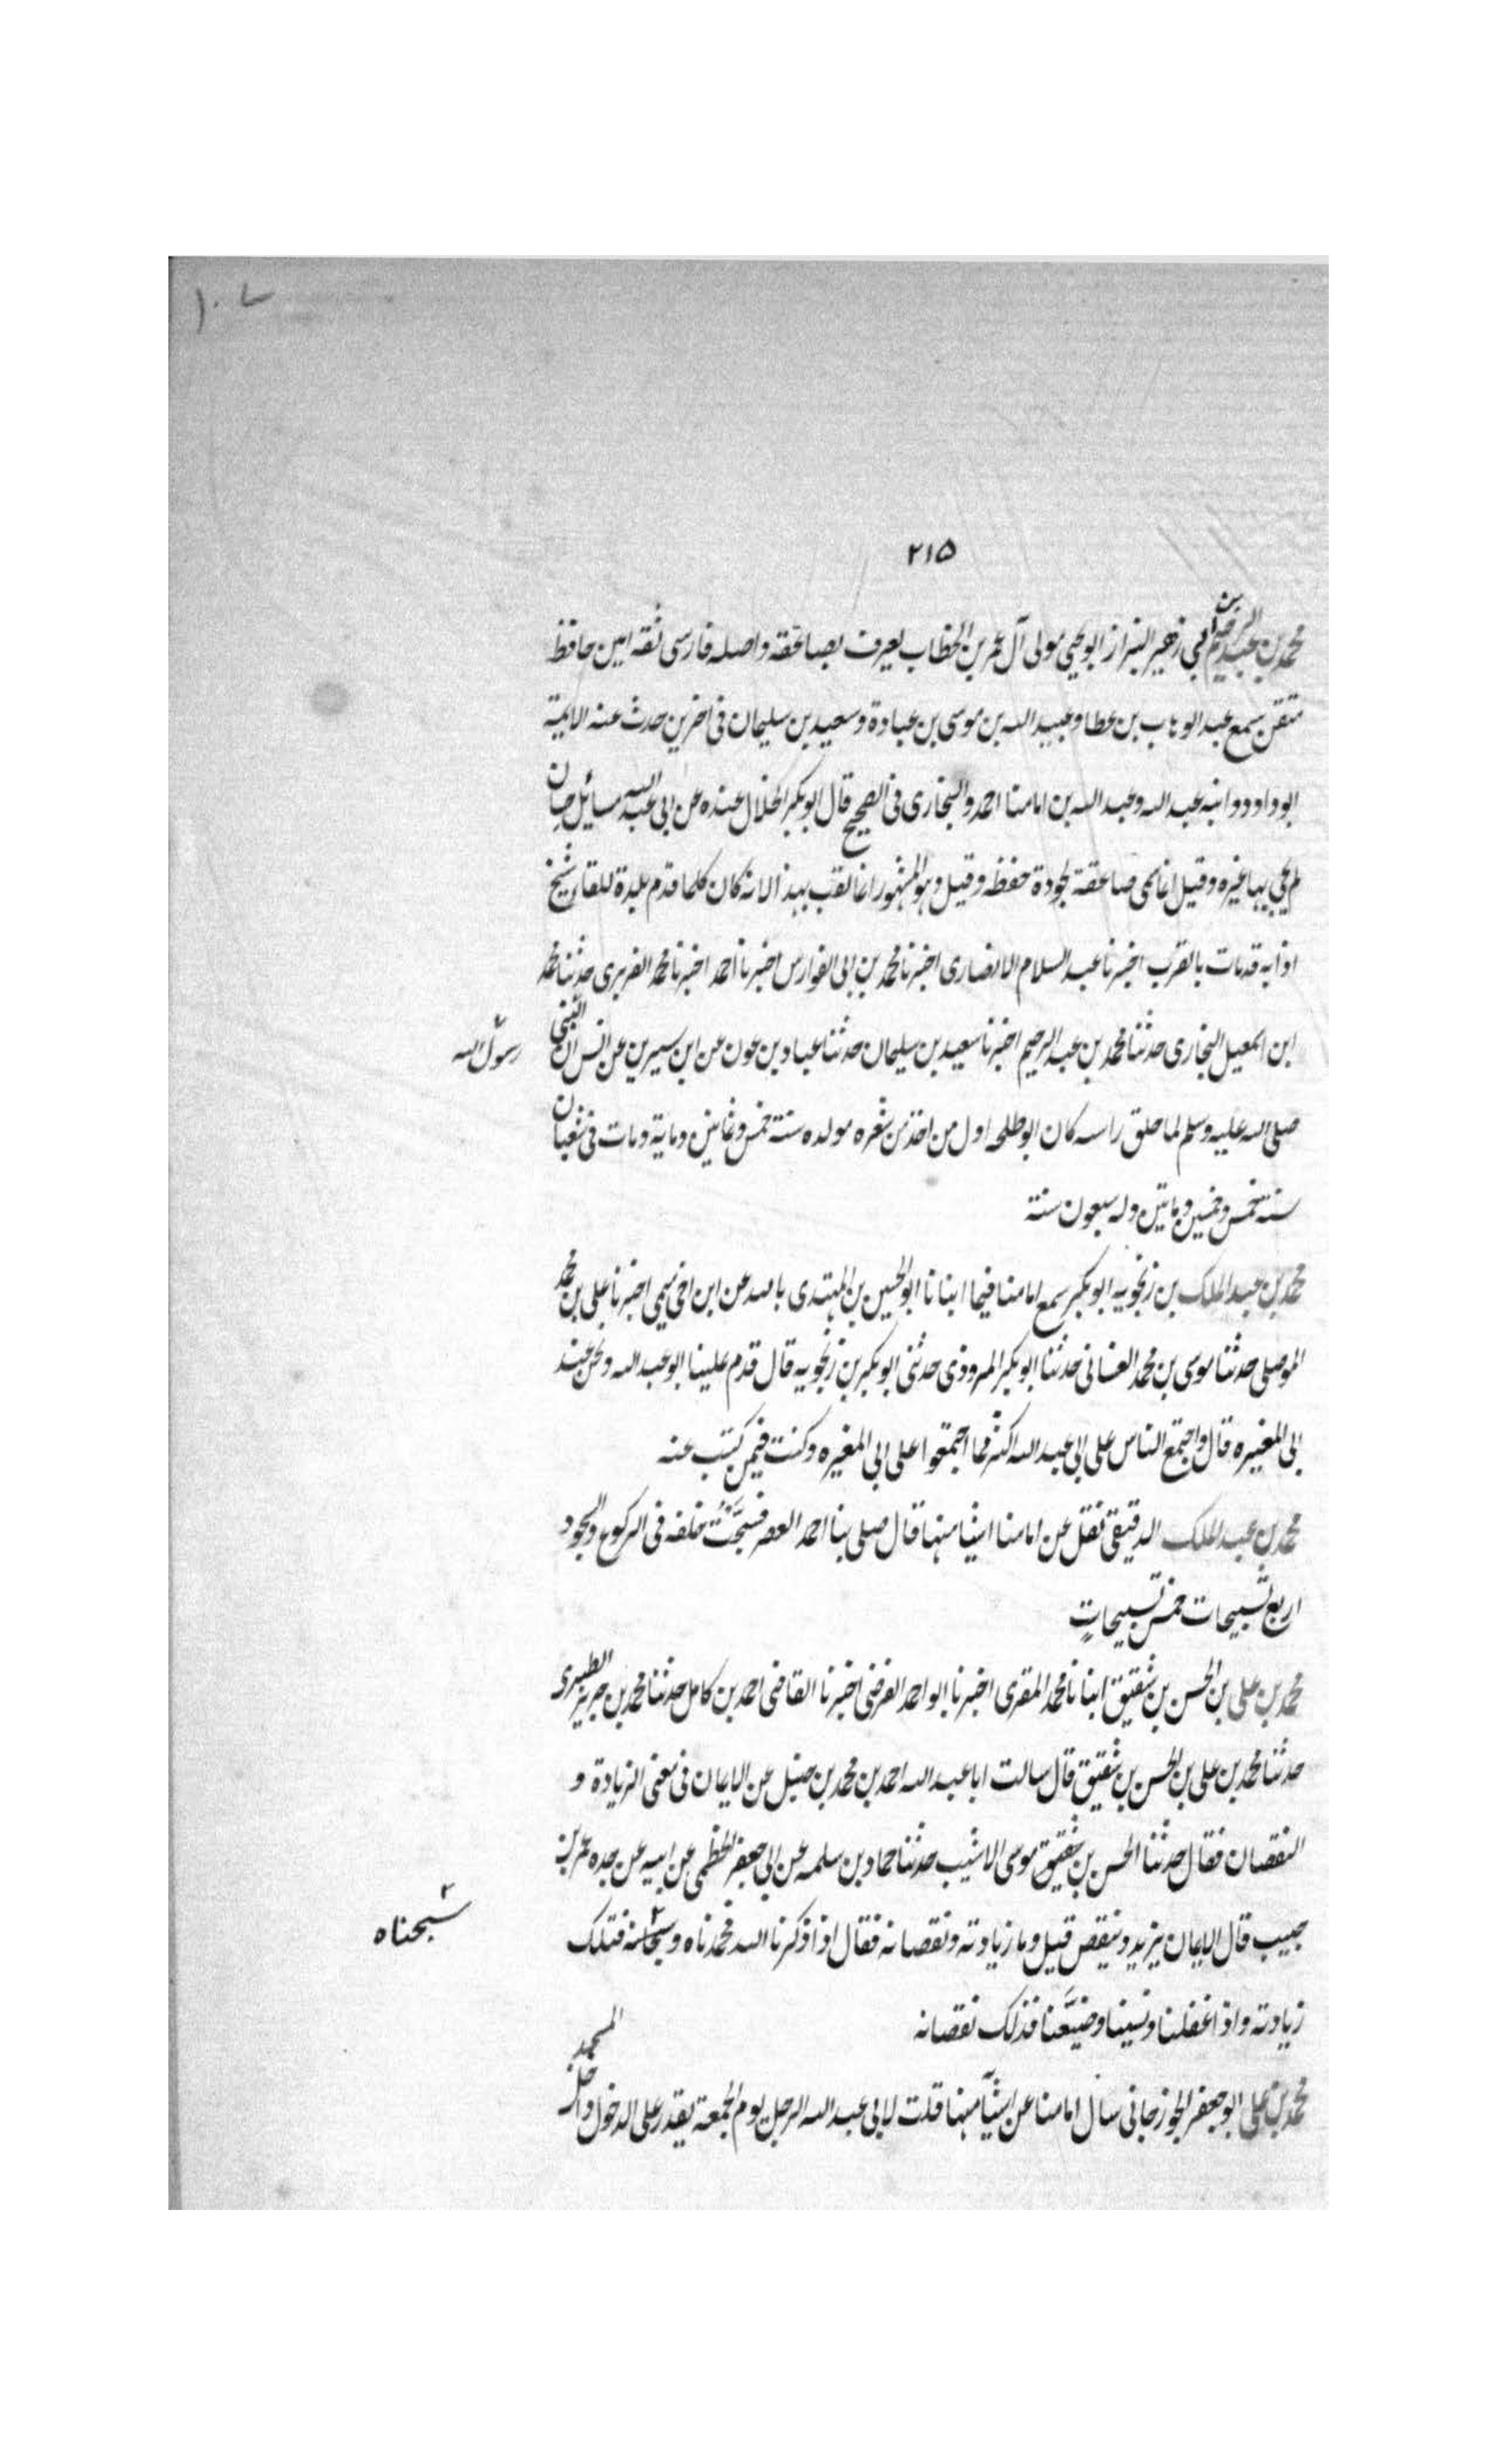 ١٠٧
٢١٥
محمد بن عبد الرحيم بن ابي زهير البزاز ابو يحيى مولى آل عمر بن الخطاب يعرف بصاعقه واصله فارسى ثقه امين حافظ
متقن سمع عبد الوهاب بن عطا وعبيد الله بن موسى بن عبادة وسعيد بن سليمان فى اخرين حدث عنه الايمة
ابو داود وابنه عبد الله وعبد الله بن امامنا احمد والبخارى فى الصحيح قال ابو بكر الخلال عنده عن ابى عبد الله مسائل حسان
لم يجى بها غيره وقيل انما سمى صاعقة لجودة حفظه وقيل وهو المشهور انما لقب بهذا لانه كان كلما قدم بلدة للقاء شيخ
اذا به قد مات بالقرب اخبرنا عبد السلام الانصارى اخبرنا محمد بن ابى الفوارس اخبرنا احمد اخبرنا محمد الفربرى حدثنا محمد
ابن اسمعيل البخارى حدثنا محمد بن عبد الرحيم اخبرنا سعيد بن سليمان حدثنا عباد بن عون عن ابن سيرين عن انس ان النبى
رسول الله
صلى الله عليه وسلم لما حلق راسه كان ابو طلحه اول من اخذ من شعره مولده سنة خمس وثمانين وماية ومات فى شعبان
سنة خمس وخمسين وماتين وله سبعون سنة
محمد بن عبد الملك بن زنجويه ابو بكر سمع امامنا فيما انبانا ابو الحسين بن المهتدى بالله عن ابن اخى ميمى اخبرنا على بن محمد
الموصلى حدثنا موسى بن محمد الغسانى حدثنا ابو بكر المروذى حدثنى ابو بكر بن زنجويه قال قدم علينا ابو عبد الله ونحن عند
ابى المغيره قال واجتمع الناس على ابى عبد الله اكثر مما اجتمعوا على ابى المغيره وكنت فيمن كتب عنه
محمد بن عبد الملك الدقيقى نقل عن امامنا اشيا منها قال صلى بنا احمد العصر فسبَّحْتُ خلفه فى الركوع والسجود
اربع تسبيحات خمس تسبيحاتٍ
محمد بن على بن الحسن بن شقيق انبانا محمد المقرى اخبرنا ابو احمد الفرضى اخبرنا القاضى احمد بن كامل حدثنا محمد بن جرير الطبرى
حدثنا محمد بن على بن الحسن بن شقيق قال سالت ابا عبد الله احمد بن محمد بن حنبل عن الايمان فى معنى الزيادة و
النقصان فقال حدثنا الحسن بن شقيق موسى الاشيب حدثنا حماد بن سلمه عن ابى جعفر الخطمى عن ابيه عن جده عمر بن
حبيب قال الايمان يزيد وينقص قيل وما زيادته ونقصانه فقال اذا ذكرنا الله فحمدناه وسبحانه فتلك
٢ سبحناه
زيادته واذا غفلنا ونسينا وضيَّعنا فذلك نقصانه
محمد بن على ابو جعفر الجوزجانى سال امامنا عن اشيآ منها قلت لابى عبد الله الرجل يوم الجمعة يقدر على الدخول داخل المسجد